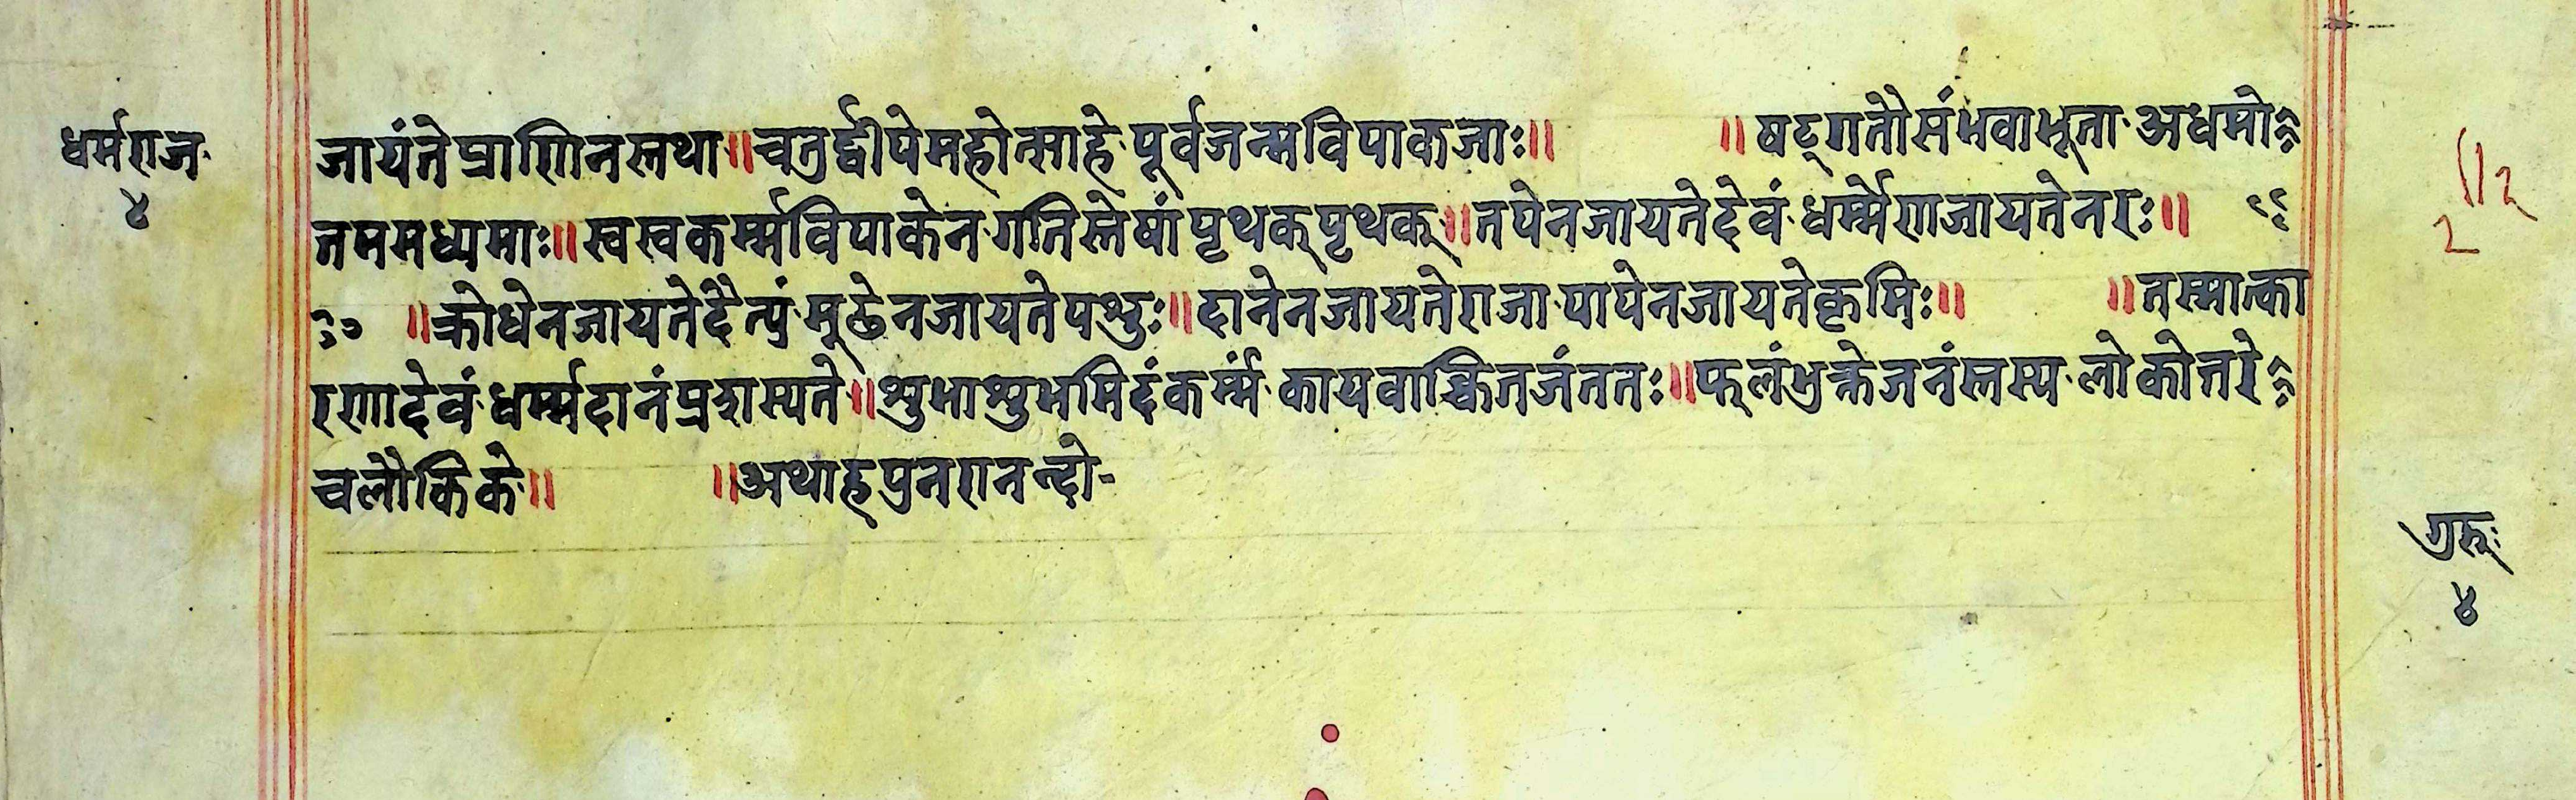 धर्मराज
४
जायंते प्राणिनस्तथा॥चतुर्द्वीपे महोत्साहे पूर्वजन्मविपाकजाः॥ ॥षट्गतौ संभवा भूता अधमो
त्तममध्यमाः॥स्वस्वकर्म्मविपाकेन गतिस्तेषां पृथक् पृथक्॥तपेन जायते देवं धर्म्मेण जायते नरः॥
॥क्रोधेन जायते दैत्यं मूढेन जायते पशुः॥दानेन जायते राजा पापेन जायते कृमिः॥ ॥तस्मात्का
रणादेवं धर्म्मदानं प्रदास्यते॥शुभाशुभमिदं कर्म्मं कायवाक्चित्तजं ततः॥फलं भुक्ते जनंस्तस्य लोकोत्तरे
च लौकिके॥ ॥अथाह पुनरानन्दो-
गुरूः
४